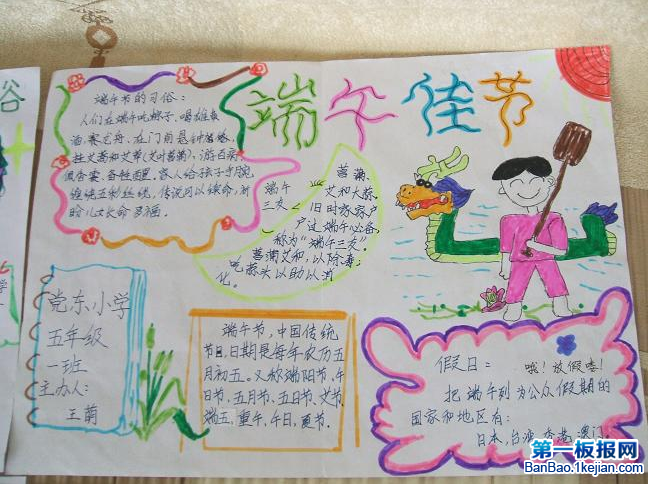 端午佳节
端午节的习俗：
人们在端午吃粽子、喝雄黄
酒、赛龙舟、在门前悬钟馗像、
挂艾蒿和艾草(艾叶菖蒲)，游百病，
佩香囊、备牲醴，家人给孩子手腕
时的儿女长命多福。
端午
三友
菖蒲、
艾和大蒜，
旧时家家户
户过端午必备，
称为“端午三友”
菖蒲艾和，以除毒；
吃蒜头以助以消
化。
党东小学
五年级
一班
主办人：
王萌
端午节，中国传统
节日，日期是每年农历五
月初五。又称端阳节、午
日节、五月节、五日节、艾节、
端五、重午、午日、夏节。
假日：
哦！放假喽！
把端午列为公众假期的
国家和地区有：
日本，台湾，香港，澳门。
第一板报网
BanBao.1kejian.com